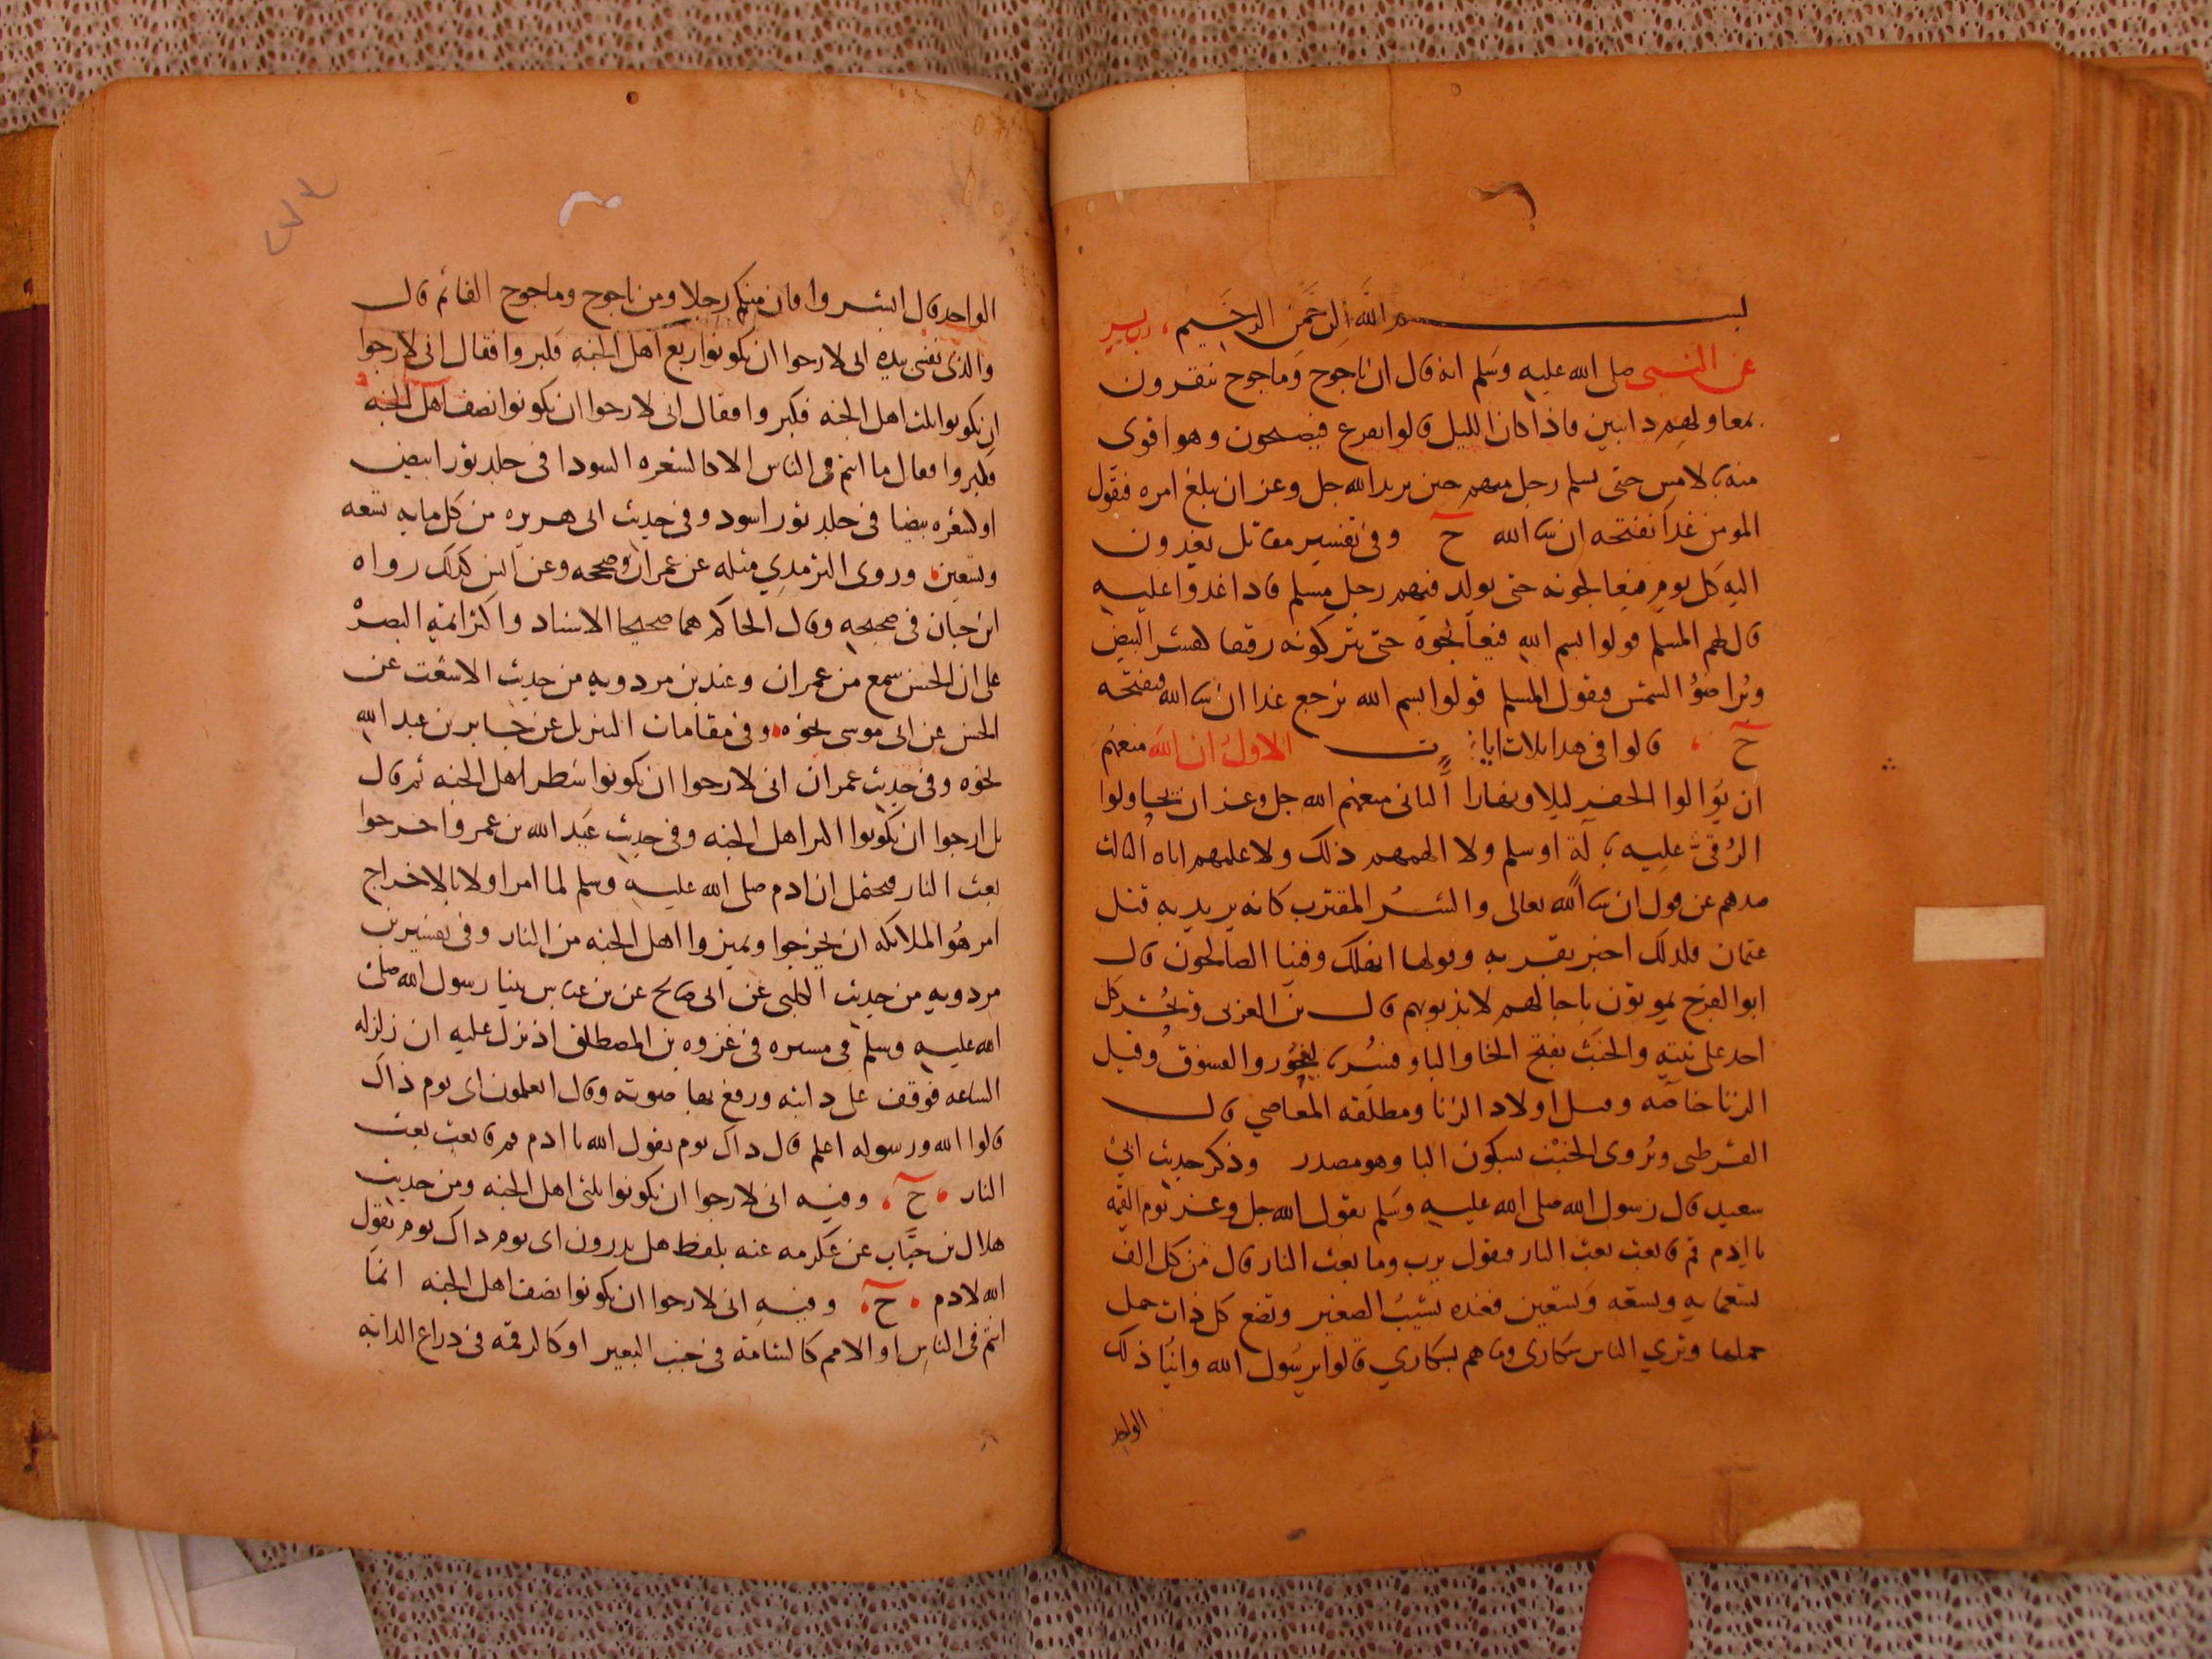 بسم الله الرحمن الرحيم رب يسر
عن النبي صلى الله عليه وسلم انه قال ان ياجوج وماجوج ينقرون
بمعاولهم دايبين فاذا كان الليل قالوا نفرع فيصبحون وهو اقوى
منه بالامس حتى يسلم رجل منهم حين يريد الله جل وعز ان يبلغ امره فيقول
المومن غدا نفتحه ان شا الله ح وفي تفسير مقاتل يغدون
اليه كل يوم فيعالجونه حتى يولد فيهم رجل مسلم فاذا غدوا عليه
قال لهم المسلم قولوا بسم الله فيعالجوه حتى يتركونه رقيقا كقشر البيض
ويرا ضوُ الشمس فيقول المسلم قولوا بسم الله نرجع غدا ان شا الله فنفتحه
ح قالوا في هذا ثلاث ايات الاول ان الله منعهم
ان يوالوا الحفر ليلا ونهارا الثاني منعهم الله جل وعز ان يحاولوا
الرقي عليه بالة او سلم ولا الهمهم ذلك ولا علمهم اياه الثالث
صدهم عن قول ان شا الله تعالى والشر المقترب كانه يريد به قتل
عثمان فلذلك اخبر بقربه وقولها انهلك وفينا الصالحون قال
ابو الفرج يموتون باجالهم لا بذنوبهم قال بن العربي ويحشر كل
احد على نيته والخبث بفتح الخا والبا وفسر بالفجور والفسوق وقيل
الزنا خاصه وقيل اولاد الزنا ومطلقه المعاصي قال
القرطبي ويُروى الخبْث بسكون البا وهو مصدر وذكر حديث ابي
سعيد قال رسول الله صلى الله عليه وسلم يقول الله جل وعز يوم القيمه
يا ادم قم فابعث بعث النار فيقول يرب وما بعث النار قال من كل الف
تسعمايه وتسعه وتسعين فعنده يشيب الصغير وتضع كل ذات حمل
حملها وتري الناس سكارى وما هم بسكاري قالوا يرسول الله واينا ذلك
الواحد
الواحد قال ابشروا فان منكم رجلا ومن ياجوج وماجوج الفا ثم قال
والذي نفسي بيده اني لارجوا ان تكونوا ربع اهل الجنه فكبروا فقال اني لارجوا
ان تكونوا ثلث اهل الجنه فكبروا فقال اني لارجوا ان تكونوا نصف اهل الجنه
فكبروا فقال ما انتم في الناس الا كالشعره السودا في جلد ثور ابيض
او كشعره بيضا في جلد ثور اسود وفي حديث ابي هريره من كل مايه تسعه
وتسعين وروى الترمذي مثله عن عمران وصححه وعن انس كذلك رواه
ابن حبان في صحيحه وقال الحاكم هما صحيحا الاسناد واكثر ائمه البصر
على ان الحسن سمع من عمران وعند بن مردويه من حديث الاشعث عن
الحسن عن ابي موسى نحوه وفي مقامات التنزيل عن جابر بن عبد الله
نحوه وفي حديث عمران اني لارجوا ان تكونوا شطر اهل الجنه ثم قال
بل ارجوا ان تكونوا اكثر اهل الجنه وفي حديث عبد الله بن عمر واخرجوا
بعث النار فيحتمل ان ادم صلى الله عليه وسلم لما امر اولا بالاخراج
امر هُو الملائكه ان يخرجوا ويميزوا اهل الجنه من النار وفي تفسير بن
مردويه من حديث الكلبي عن ابي صالح عن بن عباس بينا رسول الله صلى
الله عليه وسلم في مسيره في غزوه بن المصطلق اذ نزل عليه ان زلزله
الساعه فوقف على دابته ورفع بها صوته وقال اتعلمون اى يوم ذاك
قالوا الله ورسوله اعلم قال ذاك يوم يقول الله يا ادم قم فابعث بعث
النار ح وفيه اني لارجوا ان تكونوا ثلثي اهل الجنه ومن حديث
هلال بن خباب عن عكرمه عنه بلفظ هل تدرون اى يوم ذاك يوم يقول
الله لادم ح وفيه اني لارجوا ان تكونوا نصف اهل الجنه انما
انتم في الناس او الامم كالشامة في جنب البعير او كالرقمه في ذراع الدابه